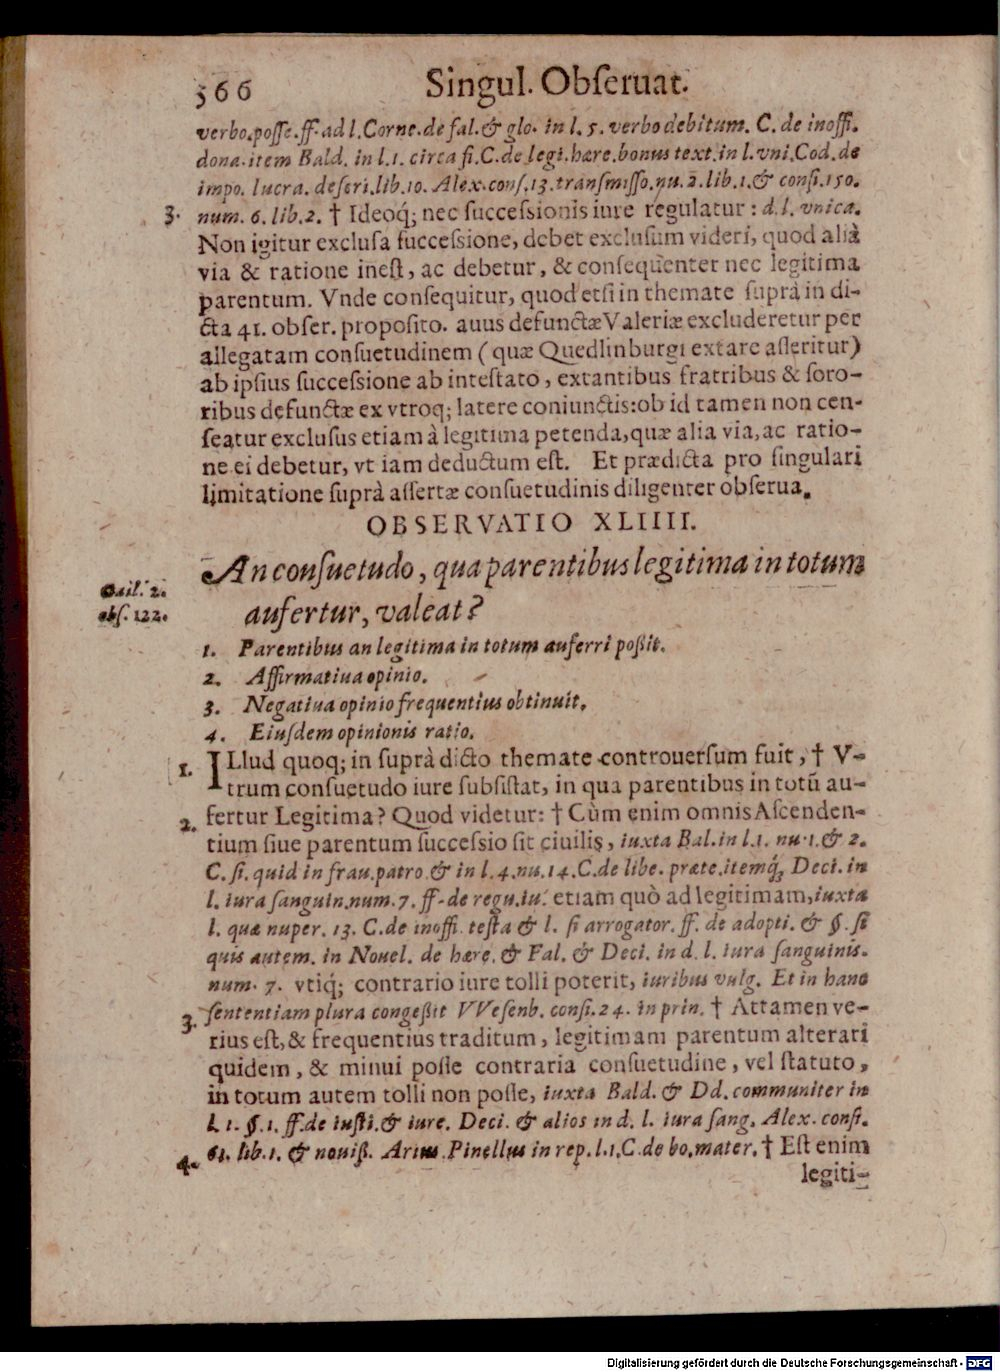 566 Singul. Obſeruat.
verbo.poſſe.ff.ad l.Corne.de fal.& glo. in l. 5. verbo debitum. C. de inoffi.
dona.item Bald. in l.1. circa fi.C.de legi.hære.bonus text.in l.vni.Cod.de
impo. lucra. deſcri.lib.10. Alex.conſ.13.tranſmiſſo.nu.2.lib.1.& conſi.150.
3. num. 6. lib.2. † Ideoq́; nec ſucceſsionis iure regulatur: d.l. vnica.
Non igitur excluſa ſucceſsione, debet excluſum videri, quod aliâ
via & ratione ineſt, ac debetur, & conſequenter nec legitima
parentum. Vnde conſequitur, quod etſi in themate ſuprà in di-
cta 41. obſer. propoſito. auus defunctæ Valeriæ excluderetur per
allegatam conſuetudinem (quæ Quedlinburgi extare aſſeritur)
ab ipſius ſucceſsione ab inteſtato, extantibus fratribus & ſoro-
ribus defunctæ ex vtroq; latere coniunctis:ob id tamen non cen-
ſeatur excluſus etiam à legitima petenda,quæ alia via,ac ratio-
ne ei debetur, vt iam deductum eſt. Et prædicta pro ſingulari
limitatione ſuprà aſſertæ conſuetudinis diligenter obſerua.
OBSERVATIO XLIIII.
An conſuetudo, qua parentibus legitima in totum
Gail. 2.
obſ. 122.
aufertur, valeat?
1. Parentibus an legitima in totum auferri poßit.
2. Affirmatiua opinio.
3. Negatiua opinio frequentius obtinuit.
4. Eiuſdem opinionis ratio.
1. ILlud quoq; in ſuprà dicto themate controuerſum fuit, † V-
trum conſuetudo iure ſubſiſtat, in qua parentibus in totũ au-
fertur Legitima? Quod videtur: † Cùm enim omnis Aſcenden-
2. tium ſiue parentum ſucceſsio ſit ciuilis, iuxta Bal.in l.1. nu.1.& 2.
C. ſi. quid in frau.patro.& in l.4.nu.14.C.de libe. præte.itemq́; Deci. in
l. iura ſanguin.num. 7. ff. de regu.iu. etiam quò ad legitimam,iuxta
l. quæ nuper. 13. C.de inoffi. teſta & l. ſi arrogator. ff. de adopti. & §. ſi
quis autem. in Nouel. de hære. & Fal. & Deci. in d. l. iura ſanguinis.
num. 7. vtiq́; contrario iure tolli poterit, iuribus vulg. Et in hanc
ſententiam plura congeßit VVeſenb. conſi.24. in prin. † Attamen ve-
3. rius eſt,& frequentius traditum, legitimam parentum alterari
quidem, & minui poſſe contraria conſuetudine, vel ſtatuto,
in totum autem tolli non poſſe, iuxta Bald. & Dd. communiter in
l. 1. §.1. ff.de iuſti.& iure. Deci. & alios in d. l. iura ſang. Alex. conſi.
4. 61. lib.1. & nouiß. Arius Pinellus in rep. l.1.C.de bo.mater. † Eſt enim
legiti-
Digitalisierung gefördert durch die Deutsche Forschungsgemeinschaft - DFG